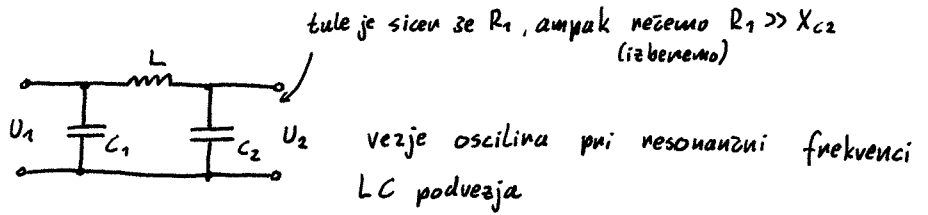 tule je sicer še R₁, ampak rečemo R₁ >> X_C2
(izberemo)
L
U₁
C₁
C₂
U₂
vezje oscilira pri resonančni frekvenci
LC podvezja